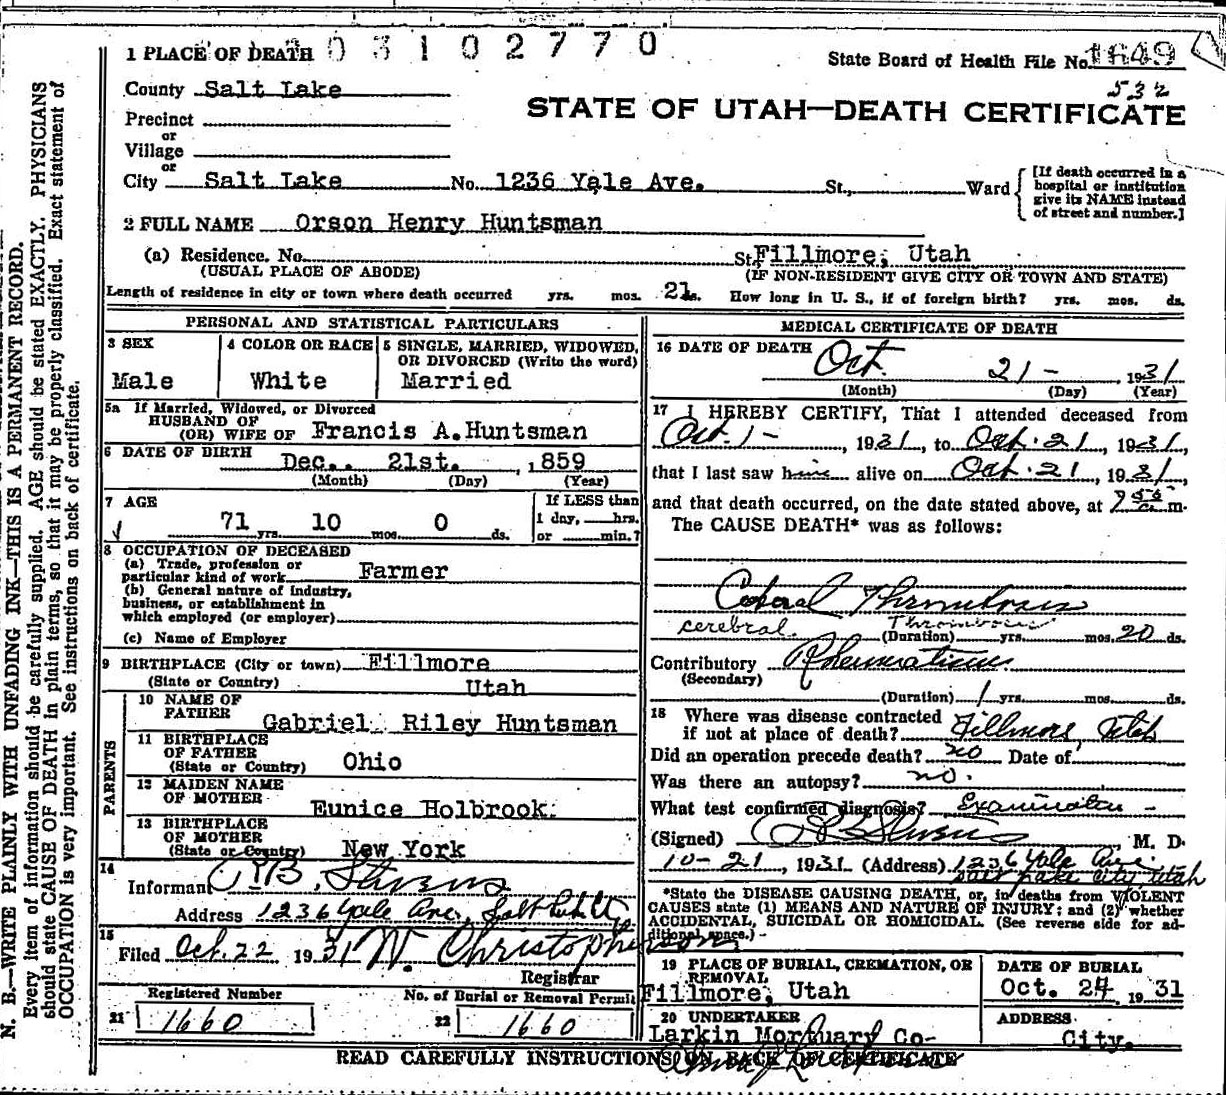 03102770
1 PLACE OF DEATH
State Board of Health File No. 1649
532
County Salt Lake
STATE OF UTAH—DEATH CERTIFICATE
Precinct
or
Village
or
City Salt Lake No. 1236 Yale Ave. St., Ward
[If death occurred in a
hospital or institution
give its NAME instead
of street and number.]
2 FULL NAME Orson Henry Huntsman
(a) Residence. No. St. Fillmore, Utah
(USUAL PLACE OF ABODE) (IF NON-RESIDENT GIVE CITY OR TOWN AND STATE)
Length of residence in city or town where death occurred yrs. mos. 21 ds. How long in U. S., if of foreign birth? yrs. mos. ds.
PERSONAL AND STATISTICAL PARTICULARS
3 SEX
Male
4 COLOR OR RACE
White
5 SINGLE, MARRIED, WIDOWED,
OR DIVORCED (Write the word)
Married
5a If Married, Widowed, or Divorced
HUSBAND OF
(OR) WIFE OF Francis A. Huntsman
6 DATE OF BIRTH Dec. 21st. , 1859
(Month) (Day) (Year)
7 AGE
71 yrs. 10 mos. 0 ds.
If LESS than
1 day, hrs.
or min.?
8 OCCUPATION OF DECEASED
(a) Trade, profession or
particular kind of work Farmer
(b) General nature of industry,
business, or establishment in
which employed (or employer)
(c) Name of Employer
9 BIRTHPLACE (City or town) Fillmore
(State or Country) Utah
PARENTS
10 NAME OF
FATHER Gabriel Riley Huntsman
11 BIRTHPLACE
OF FATHER
(State or Country) Ohio
12 MAIDEN NAME
OF MOTHER Eunice Holbrook
13 BIRTHPLACE
OF MOTHER
(State or Country) New York
14
Informant B. Stevens
Address 1236 Yale Ave, Salt Lake
15
Filed Oct. 22 1931 W. Christopherson
Registrar
Registered Number
21 1660
No. of Burial or Removal Permit
22 1660
MEDICAL CERTIFICATE OF DEATH
16 DATE OF DEATH
Oct. 21 - , 1931
(Month) (Day) (Year)
17 I HEREBY CERTIFY, That I attended deceased from
Oct. 1 - , 1931, to Oct. 21, 1931,
that I last saw him alive on Oct. 21, 1931,
and that death occurred, on the date stated above, at 7 55 a m.
The CAUSE DEATH* was as follows:
Cerebral Thrombosis
cerebral Thrombosis
(Duration) yrs. mos. 20 ds.
Contributory Rheumatism
(Secondary)
(Duration) 1 yrs. mos. ds.
18 Where was disease contracted
if not at place of death? Fillmore, Utah
Did an operation precede death? no Date of
Was there an autopsy? no.
What test confirmed diagnosis? Examination -
(Signed) Stevens , M. D.
10-21, 1931. (Address) 1236 Yale Ave.
Salt Lake City Utah
*State the DISEASE CAUSING DEATH, or, in deaths from VIOLENT
CAUSES state (1) MEANS AND NATURE OF INJURY; and (2) whether
ACCIDENTAL, SUICIDAL OR HOMICIDAL. (See reverse side for ad-
ditional space.)
19 PLACE OF BURIAL, CREMATION, OR
REMOVAL
Fillmore, Utah
DATE OF BURIAL
Oct. 24, 1931
20 UNDERTAKER
Larkin Mortuary Co-
ADDRESS
City.
READ CAREFULLY INSTRUCTIONS ON BACK OF CERTIFICATE
N. B.—WRITE PLAINLY WITH UNFADING INK—THIS IS A PERMANENT RECORD.
Every item of information should be carefully supplied. AGE should be stated EXACTLY. PHYSICIANS
should state CAUSE OF DEATH in plain terms, so that it may be properly classified. Exact statement of
OCCUPATION is very important. See instructions on back of certificate.